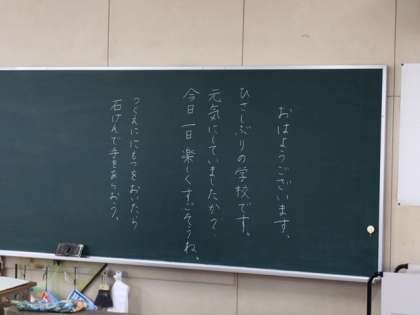 おはようございます。
ひさしぶりの学校です。
元気にしていましたか?
今日一日楽しくすごそうね。
つくえににもつをおいたら
石けんで手をあらおう。